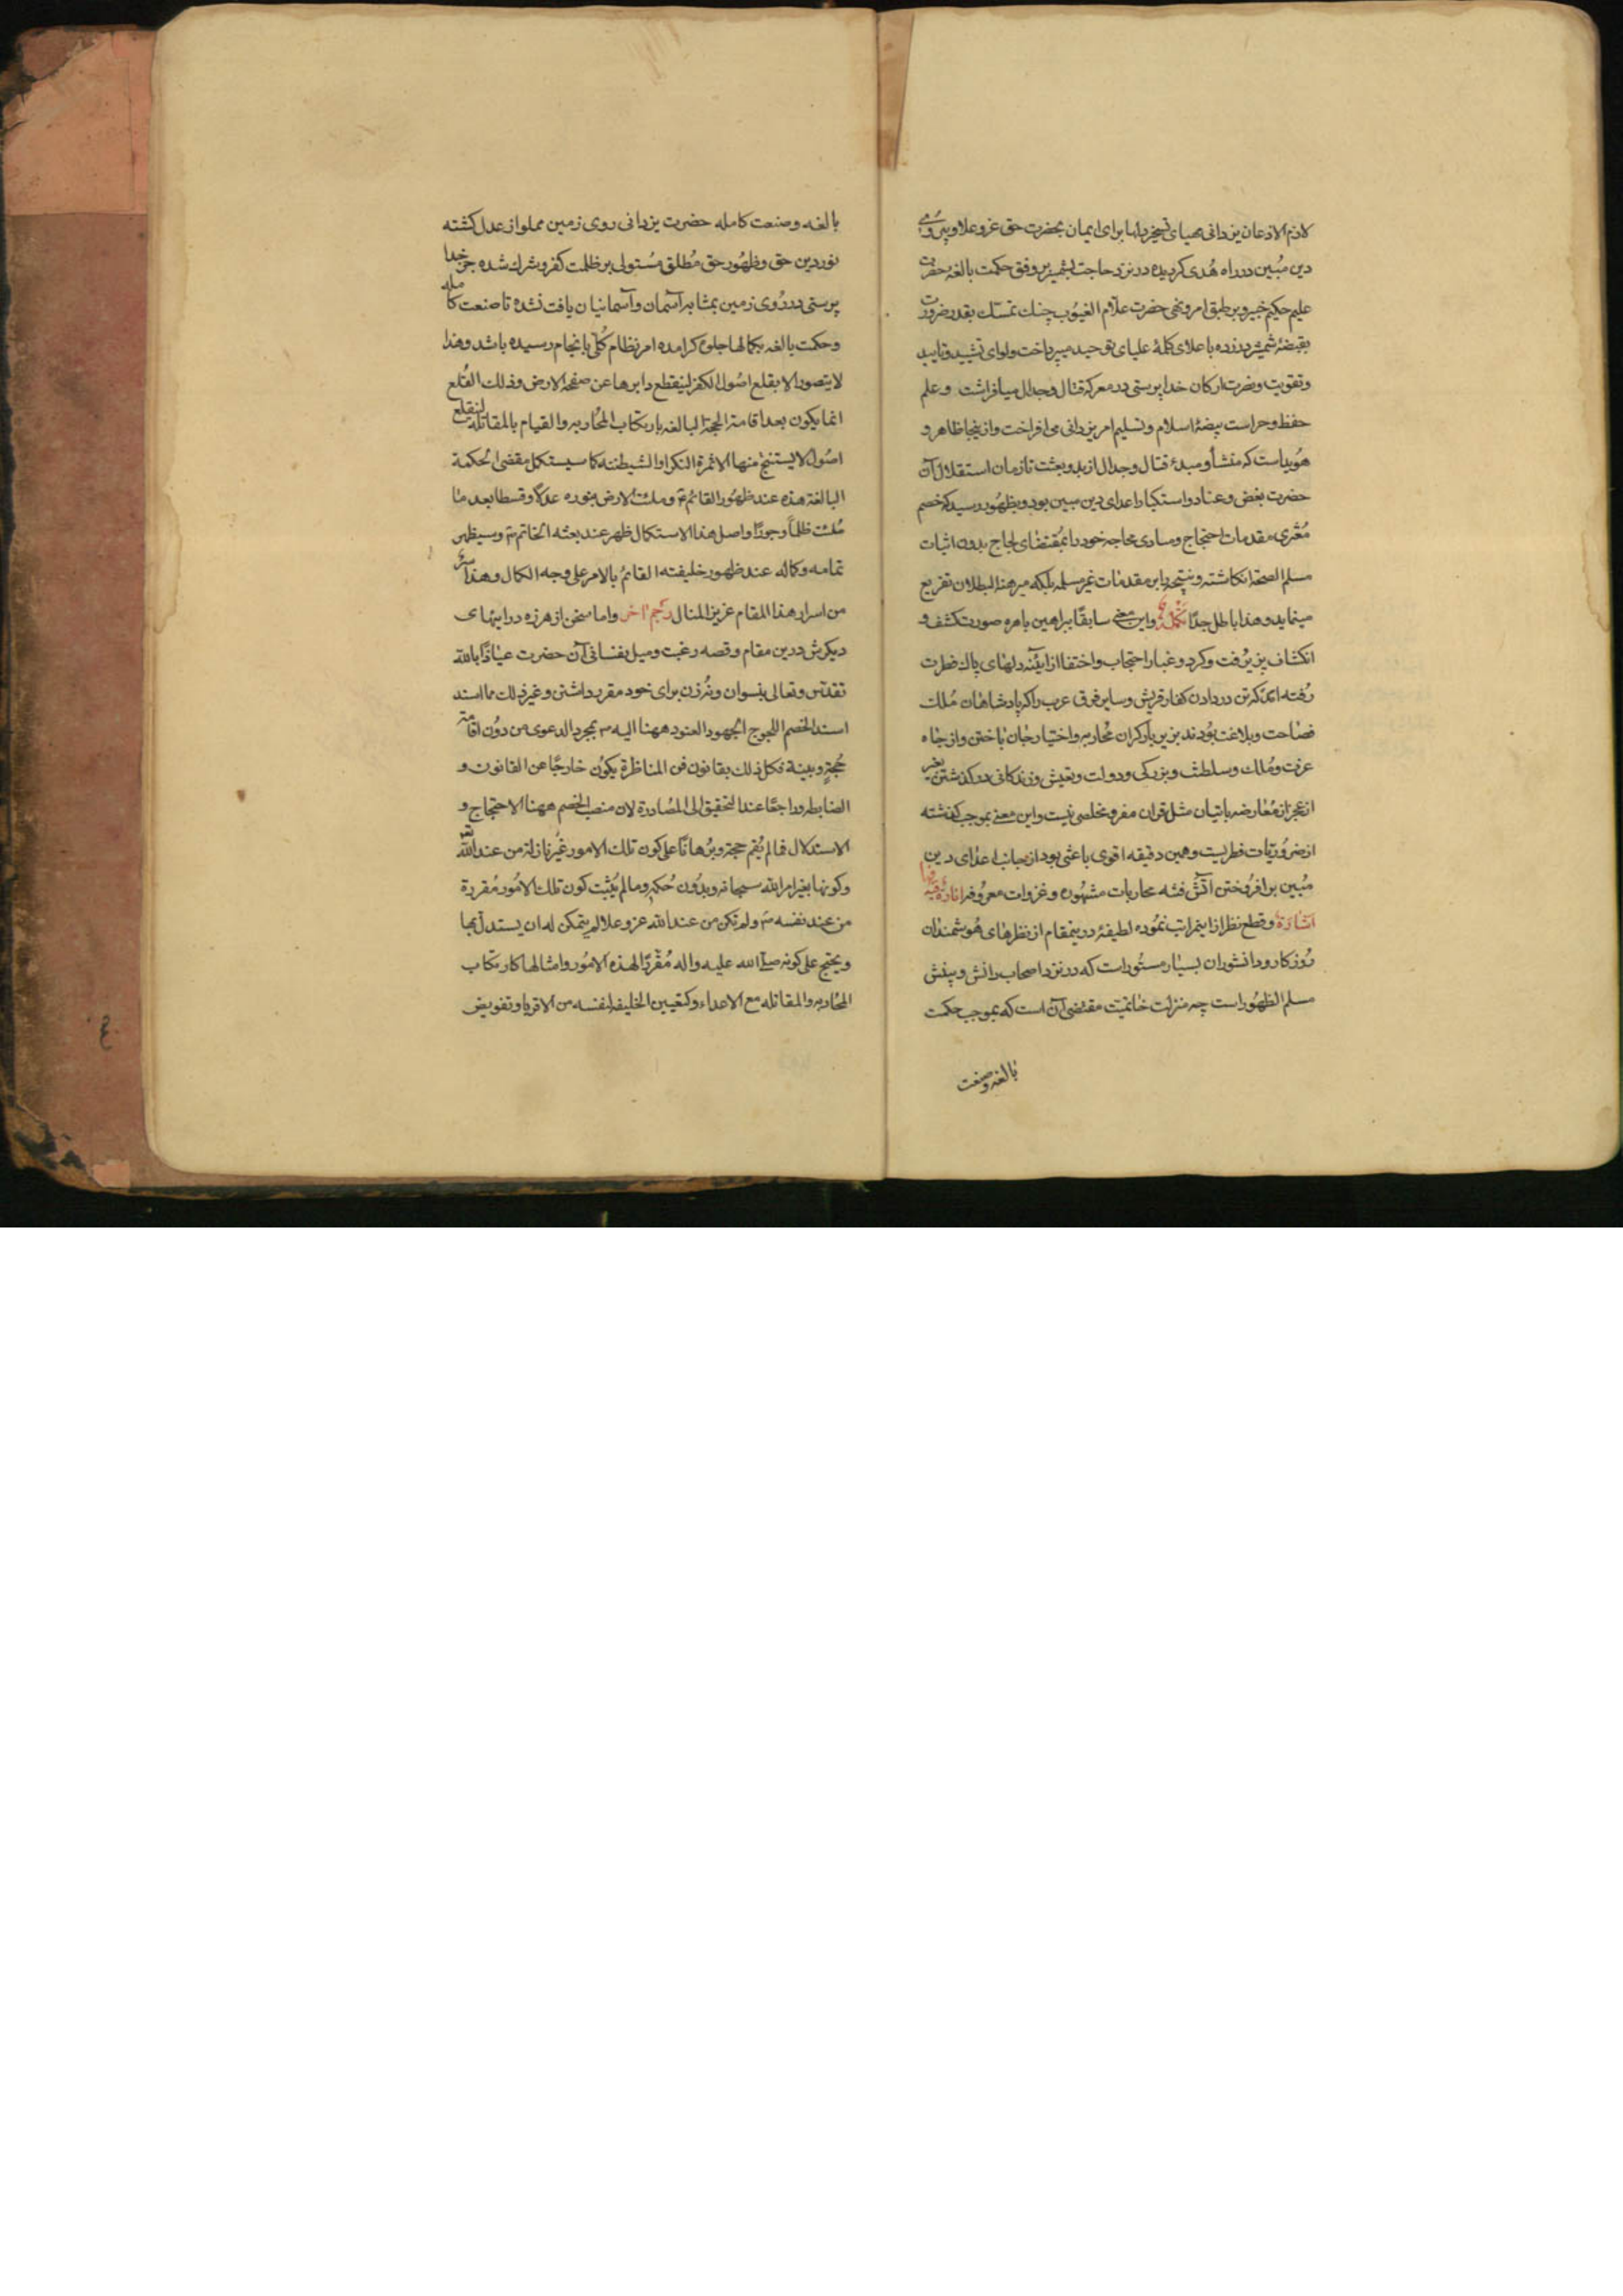 لازم الاذعان یزدانی مهیای تسخیر دلها برای ایمان بحضرت حق عز و علا و پیروی
دین مبین در راه هدی کردیده در نزد حاجت بشمشیر بر وفق حکمت بالغهٔ حضرت
علیم حکیم خبیر و بر طبق امر و نهی حضرت علّام الغیوب چنک تمسّک بقدر ضرورت
بقبضهٔ شمشیر در زده باعلای کلمهٔ علیای توحید میپرداخت و لوای تشیید و تایید
و تقویت و نصرت ارکان خداپرستی در معرکه قتال و جدال میافراشت و علم
حفظ و حراست بیضهٔ اسلام و تسلیم امر یزدانی می افراخت و از ینجا ظاهر و
هویداست که منشأ و مبدء قتال و جدال از بدو بعثت تا زمان استقلال آن
حضرت بغض و عناد و استکبار اعدای دین مبین بود و بظهور رسید که خصم
مفتری مقدمات احتجاج و مبادی محاجه خود را بمقتضای لجاج بدون اثبات
مسلم الصحة انکاشته و نتیجه را بر مقدمات غیر مسلمه بلکه مبرهنة البطلان تفریع
مینماید و هذا باطل جدّا تکملة و این معنی سابقًا ببراهین باهره صورت کشف و
انکشاف پذیرفت و کرد و غبار احتجاب و اختفا از آیئنه دلهای پاک فطرت
رفته امد که تن در دادن کفار قریش و سایر فرق عرب را که پادشاهان ملک
فصاحت و بلاغت بودند بزیر بار کران محاربه و اختیار جان باختن و از جاه
عزت و ملک و سلطنت و بزرکی و دولت و تعیش و زندکانی در کذشتن بغیر
از عجز از معارضه باتیان مثل قران مفر و مخلصی نیست و این معنی بموجب کذشته
از ضروریات فطریست و همین دقیقه اقوی باعثی بود از جانب اعدای دین
مبین بر افروختن آتش فتنه محاربات مشهوره و غزوات معروفه انارة فیها
اشارة و قطع نظر از اینمراتب نموده لطیفهٔ در ینمقام از نظرهای هوشمندان
روزکار و دانشوران بسیار مستور است که در نزد اصحاب دانش و بینش
مسلم الظهور است چه منزلت خاتمیّت مقتضی آن است که بموجب حکمت
بالغه و صنعت
بالغه و صنعت کامله حضرت یزدانی روی زمین مملو از عدل کشته
نور دین حق و ظهور حق مطلق مستولی بر ظلمت کفر و شرک شده جز خدا
پرستی در روی زمین بمثابه آسمان و آسمانیان یافت نشده تا صنعت کامله
و حکمت بالغه بکمالها جلوه کر امده امر نظام کلّی بانجام رسیده باشد و هذا
لا یتصور الا بقلع اصول الکفر لینقطع دابرها عن صفحة الارض و ذلک القلع
انما یکون بعد اقامة الحجة البالغه بارتکاب المحاربه و القیام بالمقاتله لینقلع
اصول لا یستنتج منها الا ثمرة النکراء و الشیطنة کما سیستکمل مقتضی الحکمة
البالغة هذه عند ظهور القائم ع و ملئت الارض بنوره عدلًا و قسطا بعد ما
ملئت ظلمًا و جورًا و اصل هذا الاستکمال ظهر عند بعثه الخاتم ص و سیظهر
تمامه و کماله عند ظهور خلیفته القائم بالامر علی وجه الکمال و هذا سرّ
من اسرار هذا المقام عزیز المنال رجم اخر و اما سخن از هرزه دراییهای
دیکرش درین مقام و قصه رغبت و میل نفسانی آن حضرت عیاذًا بالله
تقدّس و تعالی بنسوان و نُه زن برای خود مقرر داشتن و غیر ذلک مما اسند
اسند الخصم اللجوج الجهود العنود ههنا الیه ص بمجرد الدعوی من دون اقامة
حجّةٍ و بینة فکل ذلک بقانون فن المناظرة یکون خارجًا عن القانون و
الضابطه و راجعًا عند التحقیق الی المصادرة لان منصب الخصم ههنا الاحتجاج و
الاستدلال فما لم یقم حجة و برهانًا علی کون تلک الامور غیر نازلة من عند الله
و کونها بغیر امر الله سبحانه و بدون حکمه و ما لم یثبت کون تلک الامور مقررة
من عند نفسه ص و لم تکن من عند الله عز و علا لم یتمکن له ان یستدلّ بها
و یحتج علی کونه صلی الله علیه و اله مقررًا لهذه الامور و امثالها کارتکاب
المحاربه و المقاتله مع الاعداء و کتعیین الخلیفة لنفسه من الاقربا و تفویض